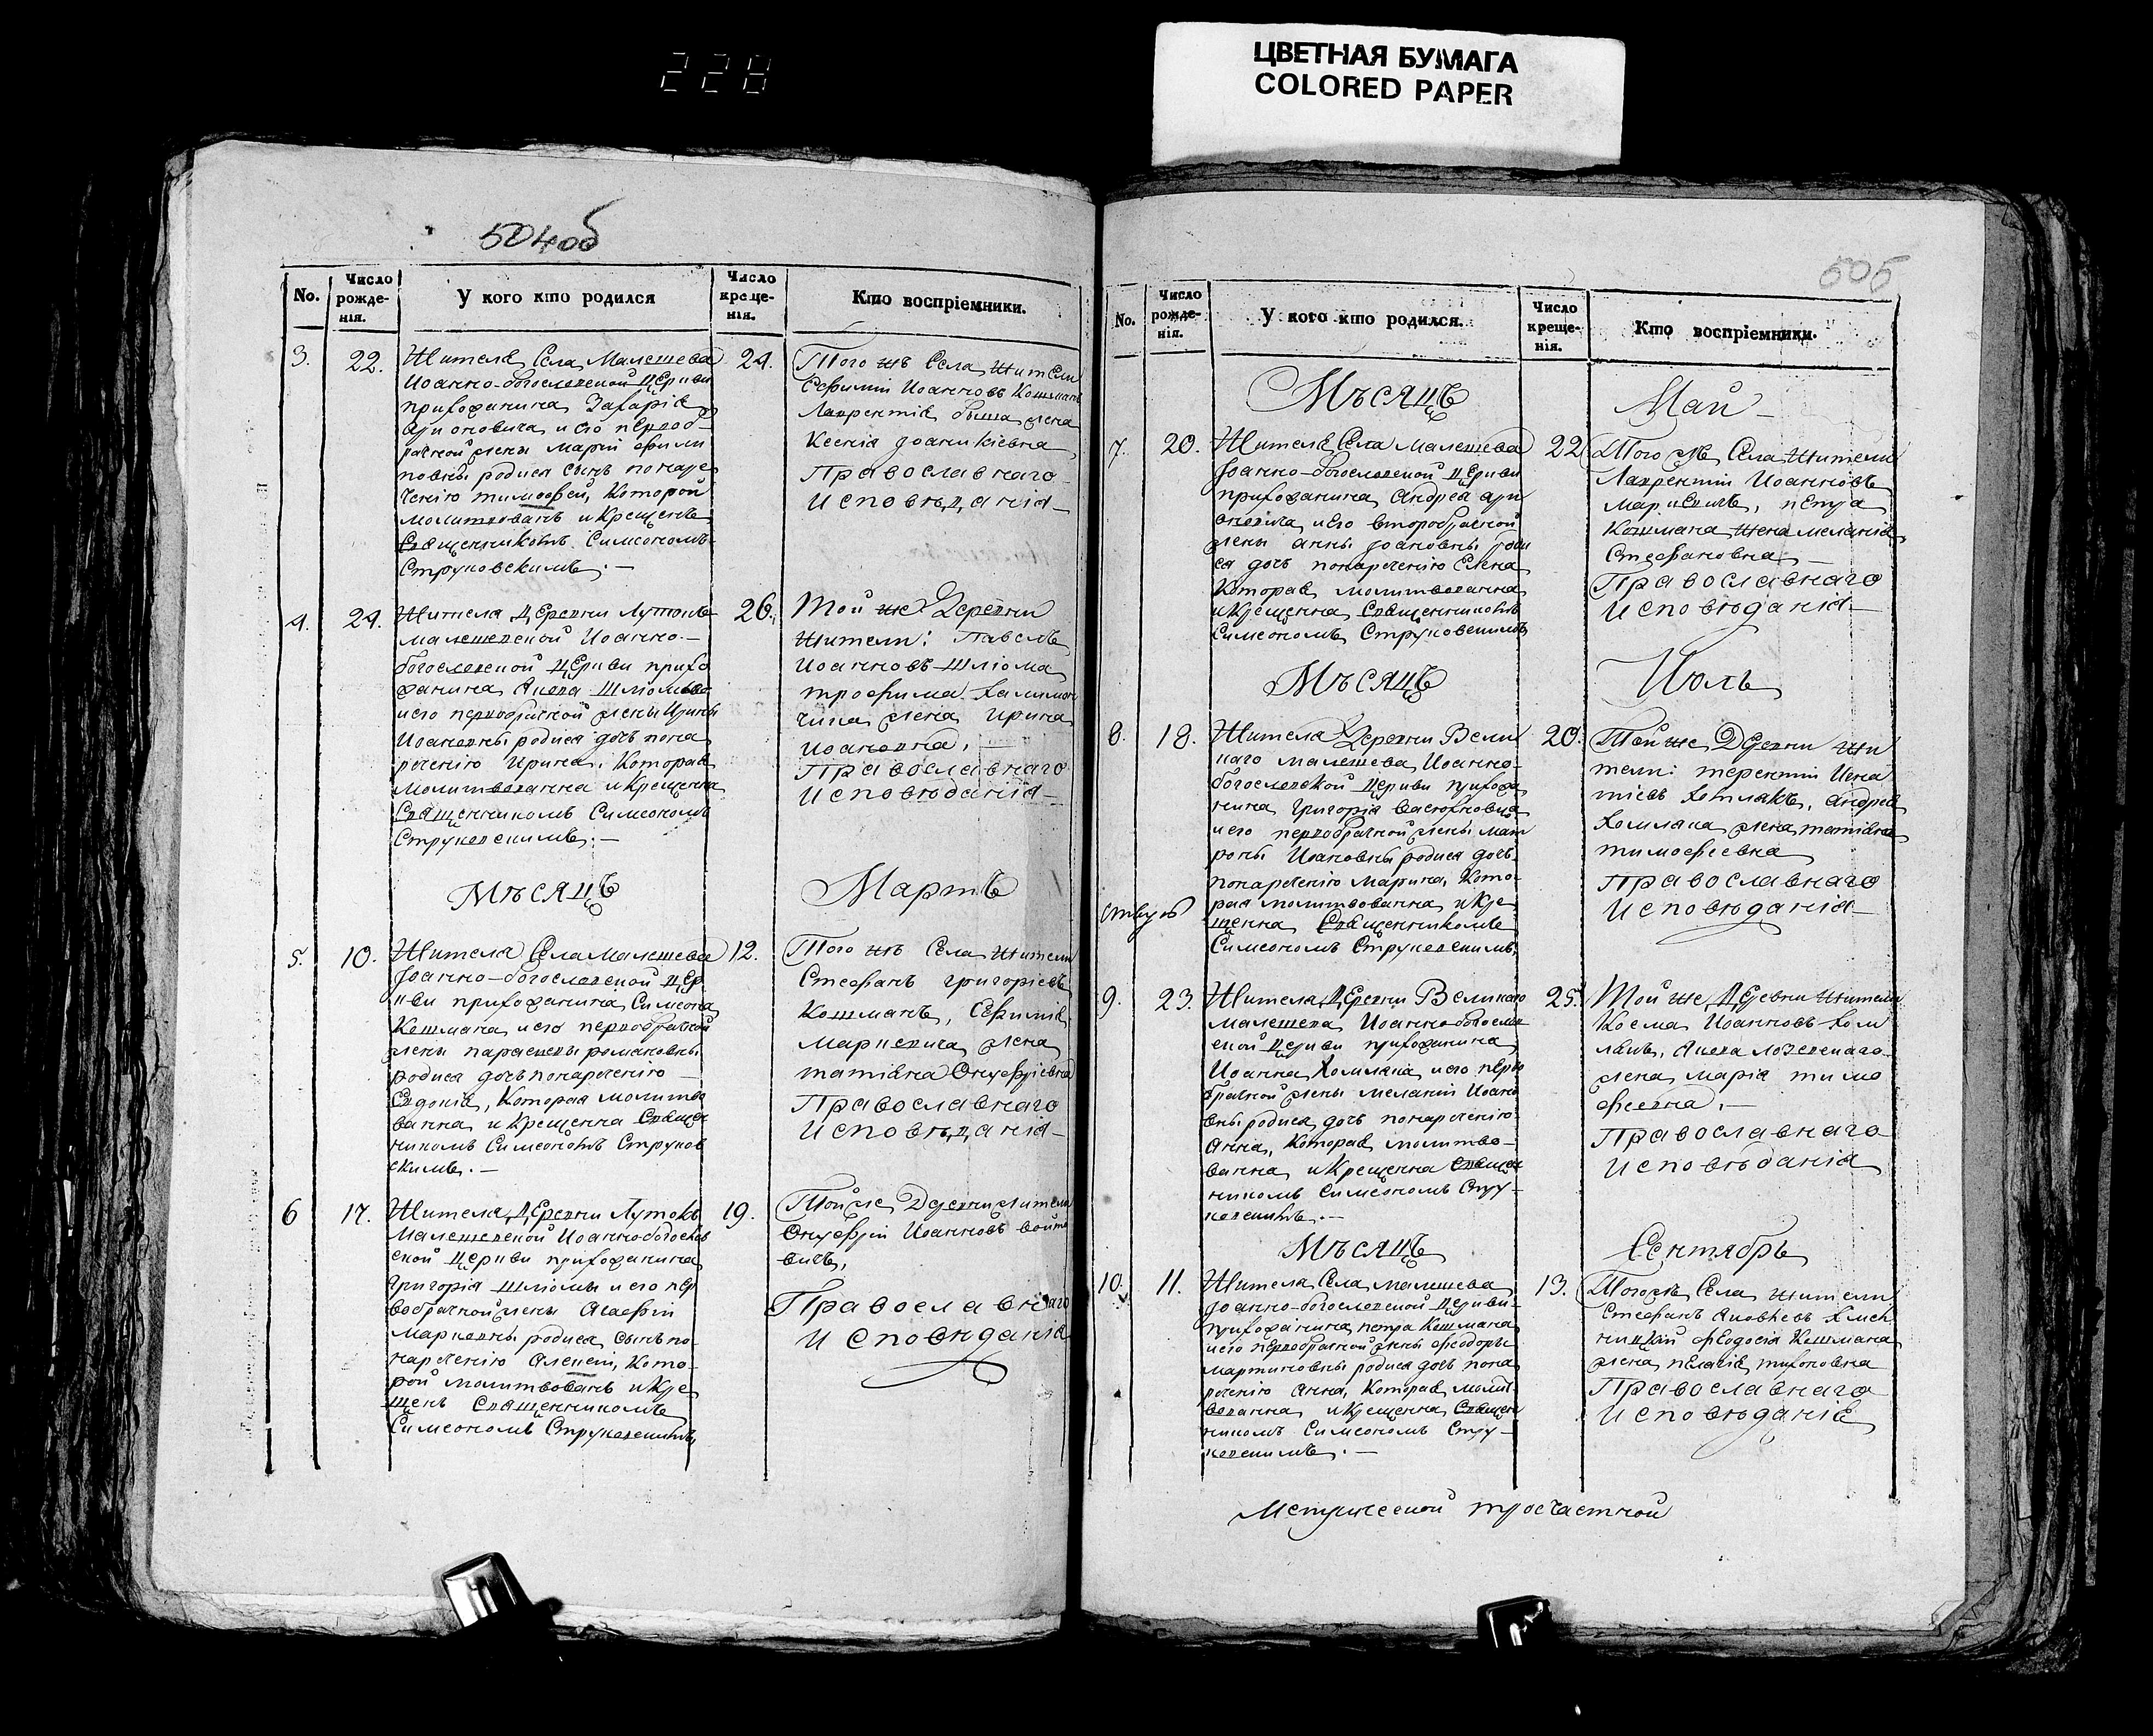 228
ЦВЕТНАЯ БУМАГА
COLORED PAPER
504об
No.
Число рожде-нія.
У кого кто родился
Число креще-нія.
Кто воспріемники.
3.
22.
Жителя Села Малешева
Иоанно-богословской Церкви
прихожанина Захарія
и его первоб-
рачной жены Маріи Фили
повны родися сынъ по наре
ченію Тимофей, Которой
молитвованъ и Крещенъ
Священникомъ Симеономъ
Струковскимъ. —
24.
Того жъ Села Жители
Иоанновъ Кошманъ
Лаврентія жена
Ксенія Іоаникіевна
Православнаго
Исповѣданія
4.
24.
Жителя Деревни Лутокъ
малешевской Иоанно-
богословской Церкви прихо
жанина Шлюмы
и его первобрачной жены Ирины
Иоановны родися дочь по на
реченію Ирина, Которая
Молитвованна и Крещенна
Священникомъ Симеономъ
Струковскимъ. —
26.
Той же Деревни
Жители: Павелъ
Иоанновъ Шлюма
трофима
жена Ирина
Иоановна,
Православнаго
Исповѣданія
Мѣсяцъ
Мартъ
5.
10.
Жителя Села Малешева
Іоанно-богословской Цер
кви прихожанина Симеона
Кошмана и его первобрачной
жены параскевы романовны
родися дочь по нареченію
Евдокія, Которая молитво
ванна и Крещенна Священ
никомъ Симеономъ Струков
скимъ. —
12.
Того жъ Села Жители
Стефанъ Григоріевъ
Кошманъ, Ефимія
Маркевича жена
татіана Онуфріевна
Православнаго
Исповѣданія
6
17.
Жителя Деревни Лутокъ
Малешевской Иоанно-богослов
ской Церкви прихожанина
Григорія Шлюмы и его пер
вобрачной жены Агафіи
Марковны родися сынъ по
нареченію Алексій, Кото-
рой молитвованъ и Кре
щенъ Священникомъ
Симеономъ Струковскимъ,
19.
Той же Деревни жители
Онуфрій Иоанновъ войто
вичъ,
Православнаго
Исповѣданія
505
No.
Число рожде-нія.
У кого кто родился.
Число креще-нія.
Кто воспріемники.
Мѣсяцъ
Май
7.
20.
Жителя Села Малешева
Іоанно-богословской Церкви
прихожанина Андрея
и его второбрачной
жены анны Іоановны роди
ся дочь по нареченію Елена
Которая молитвованна
и Крещенна Священникомъ
Симеономъ Струковскимъ
22
Того жъ Села Жители
Лаврентій Иоанновъ
петра
Кошмана Жена мелания
Стефановна
Православнаго
Исповѣданія
Мѣсяцъ
Июль
8.
18.
Жителя Деревни Вели
каго Малешева, Иоанно-
богословской Церкви прихожа
нина Григорія
и его первобрачной жены мат
роны Иоановны родися дочь
по нареченію Марина, Кото-
рая молитвованна и Кре
щенна Священникомъ
Симеономъ Струковскимъ.
20.
Той же Деревни Жи
тели: терентій Игна
тіевъ Хомлакъ, Андрея
Хомлака жена татіана
тимофеевна
Православнаго
Исповѣданія
9.
23.
Жителя Деревни Великаго
Малешева Иоанно-богослов
ской Церкви прихожанина
Иоанна Хомлака и его перво
брачной жены меланіи Иоано
вны родися дочь по нареченію
Анна, Которая молитво-
ванна и Крещенна Священ
никомъ Симеономъ Стру-
ковскимъ. —
25.
Той же Деревни Жители
Косма Иоанновъ Хом
лакъ,
жена Марія тимо
феевна. —
Православнаго
Исповѣданія
Мѣсяцъ
Сентябрь
10.
11.
Жителя Села малешева
Іоанно-богословской Церкви
прихожанина петра Кошмана
и его первобрачной жены феодоры
мартиновны родися дочь по на
реченію Анна, Которая молит-
вованна и Крещенна Священ
никомъ Симеономъ Стру-
ковскимъ. —
13.
Того жъ Села жители
Стефанъ Яковлевъ Хмел
ницкій феодосія Кошмана
жена пелагія тихоновна
Православнаго
Исповѣданія
Метрической троечастной